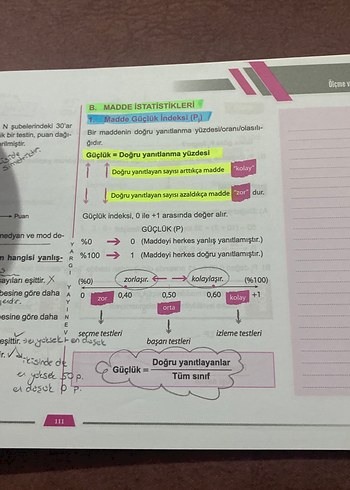 Ölçme v
N şubelerindeki 30'ar
ik bir testin, puan dağı-
rilmiştir.
Puan
medyan ve mod de-
n hangisi yanlış-
sayıları eşittir. X
besine göre daha
besine göre daha
eşittir. en yüksek + en düşük
r.
en yüksek 50 p.
en düşük 0 p.
YARGI YAYINEVİ
B. MADDE İSTATİSTİKLERİ
1 - Madde Güçlük İndeksi (Pj)
Bir maddenin doğru yanıtlanma yüzdesi/oranı/olasılı-
ğıdır.
Güçlük = Doğru yanıtlanma yüzdesi
Doğru yanıtlayan sayısı arttıkça madde "kolay"
Doğru yanıtlayan sayısı azaldıkça madde "zor" dur.
Güçlük indeksi, 0 ile +1 arasında değer alır.
GÜÇLÜK (P)
%0 → 0 (Maddeyi herkes yanlış yanıtlamıştır.)
%100 → 1 (Maddeyi herkes doğru yanıtlamıştır.)
(%0) zorlaşır. kolaylaşır. (%100)
0 zor 0,40 0,50 0,60 kolay +1
orta
seçme testleri başarı testleri izleme testleri
Güçlük = Doğru yanıtlayanlar
Tüm sınıf
111